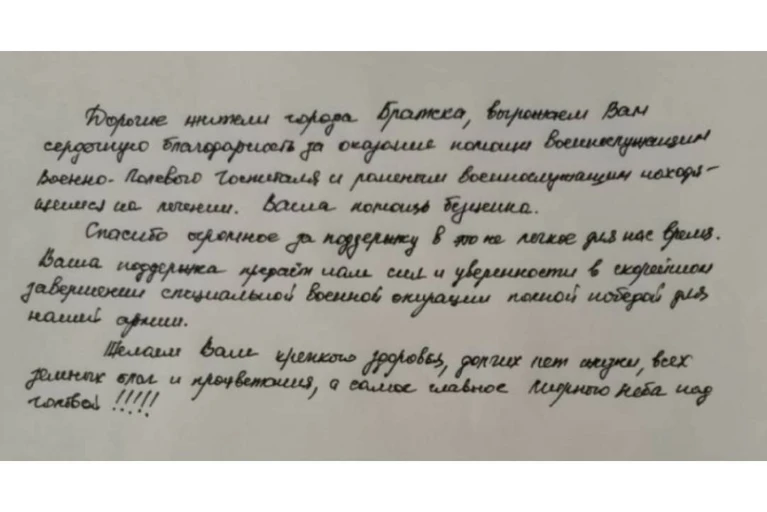 Дорогие жители города Братска, выражаем Вам
сердечную благодарность за оказание помощи военнослужащим
Военно-Полевого Госпиталя и раненым военнослужащим находя-
щимся на лечении. Ваша помощь бесценна.
Спасибо огромное за поддержку в это не легкое для нас время.
Ваша поддержка предаёт нам сил и уверенности в скорейшем
завершении специальной военной операции полной победой для
нашей армии.
Желаем Вам крепкого здоровья, долгих лет жизни, всех
земных благ и процветания, а самое главное Мирного неба над
головой !!!!!